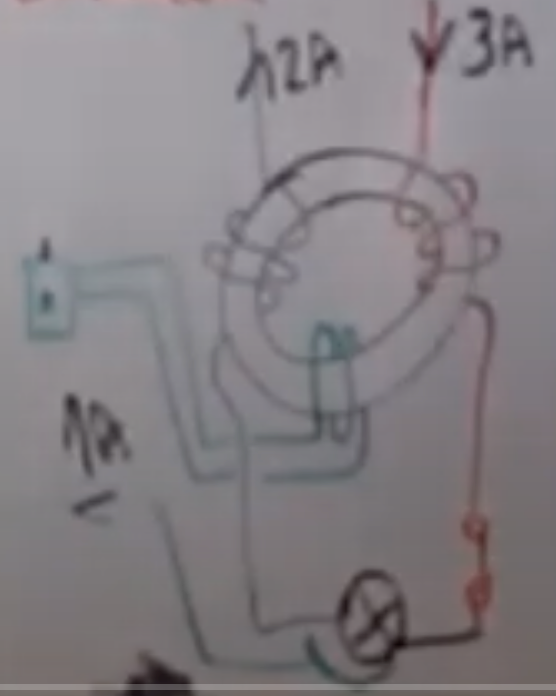 2A 3A
1A